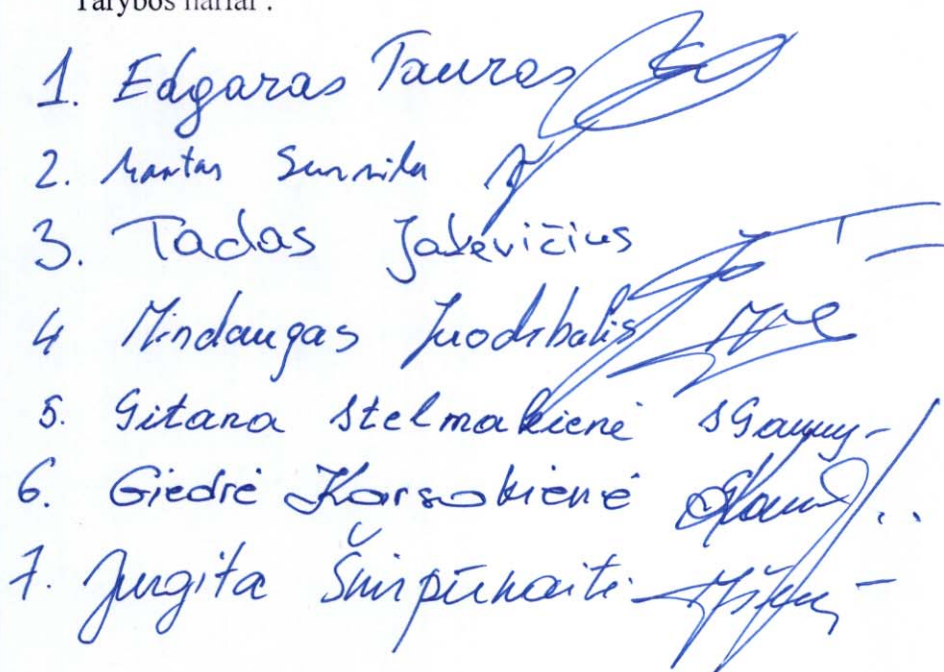 Tarybos nariai :
1. Edgaras Tauras
2. Mantas Survila
3. Tadas Jakevičius
4 Mindaugas Juodsbalis
5. Gitana Stelmakienė
6. Giedrė Korsakienė
7. Jurgita Šnirpūnaitė